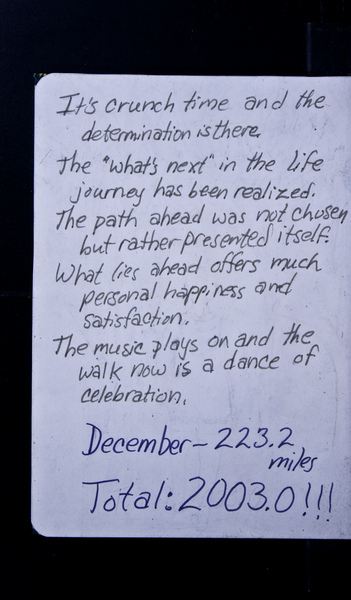 It's crunch time and the
determination is there.
The "what's next" in the life
journey has been realized.
The path ahead was not chosen
but rather presented itself.
What lies ahead offers much
personal happiness and
satisfaction.
The music plays on and the
walk now is a dance of
celebration.
December - 223.2
miles
Total: 2003.0!!!